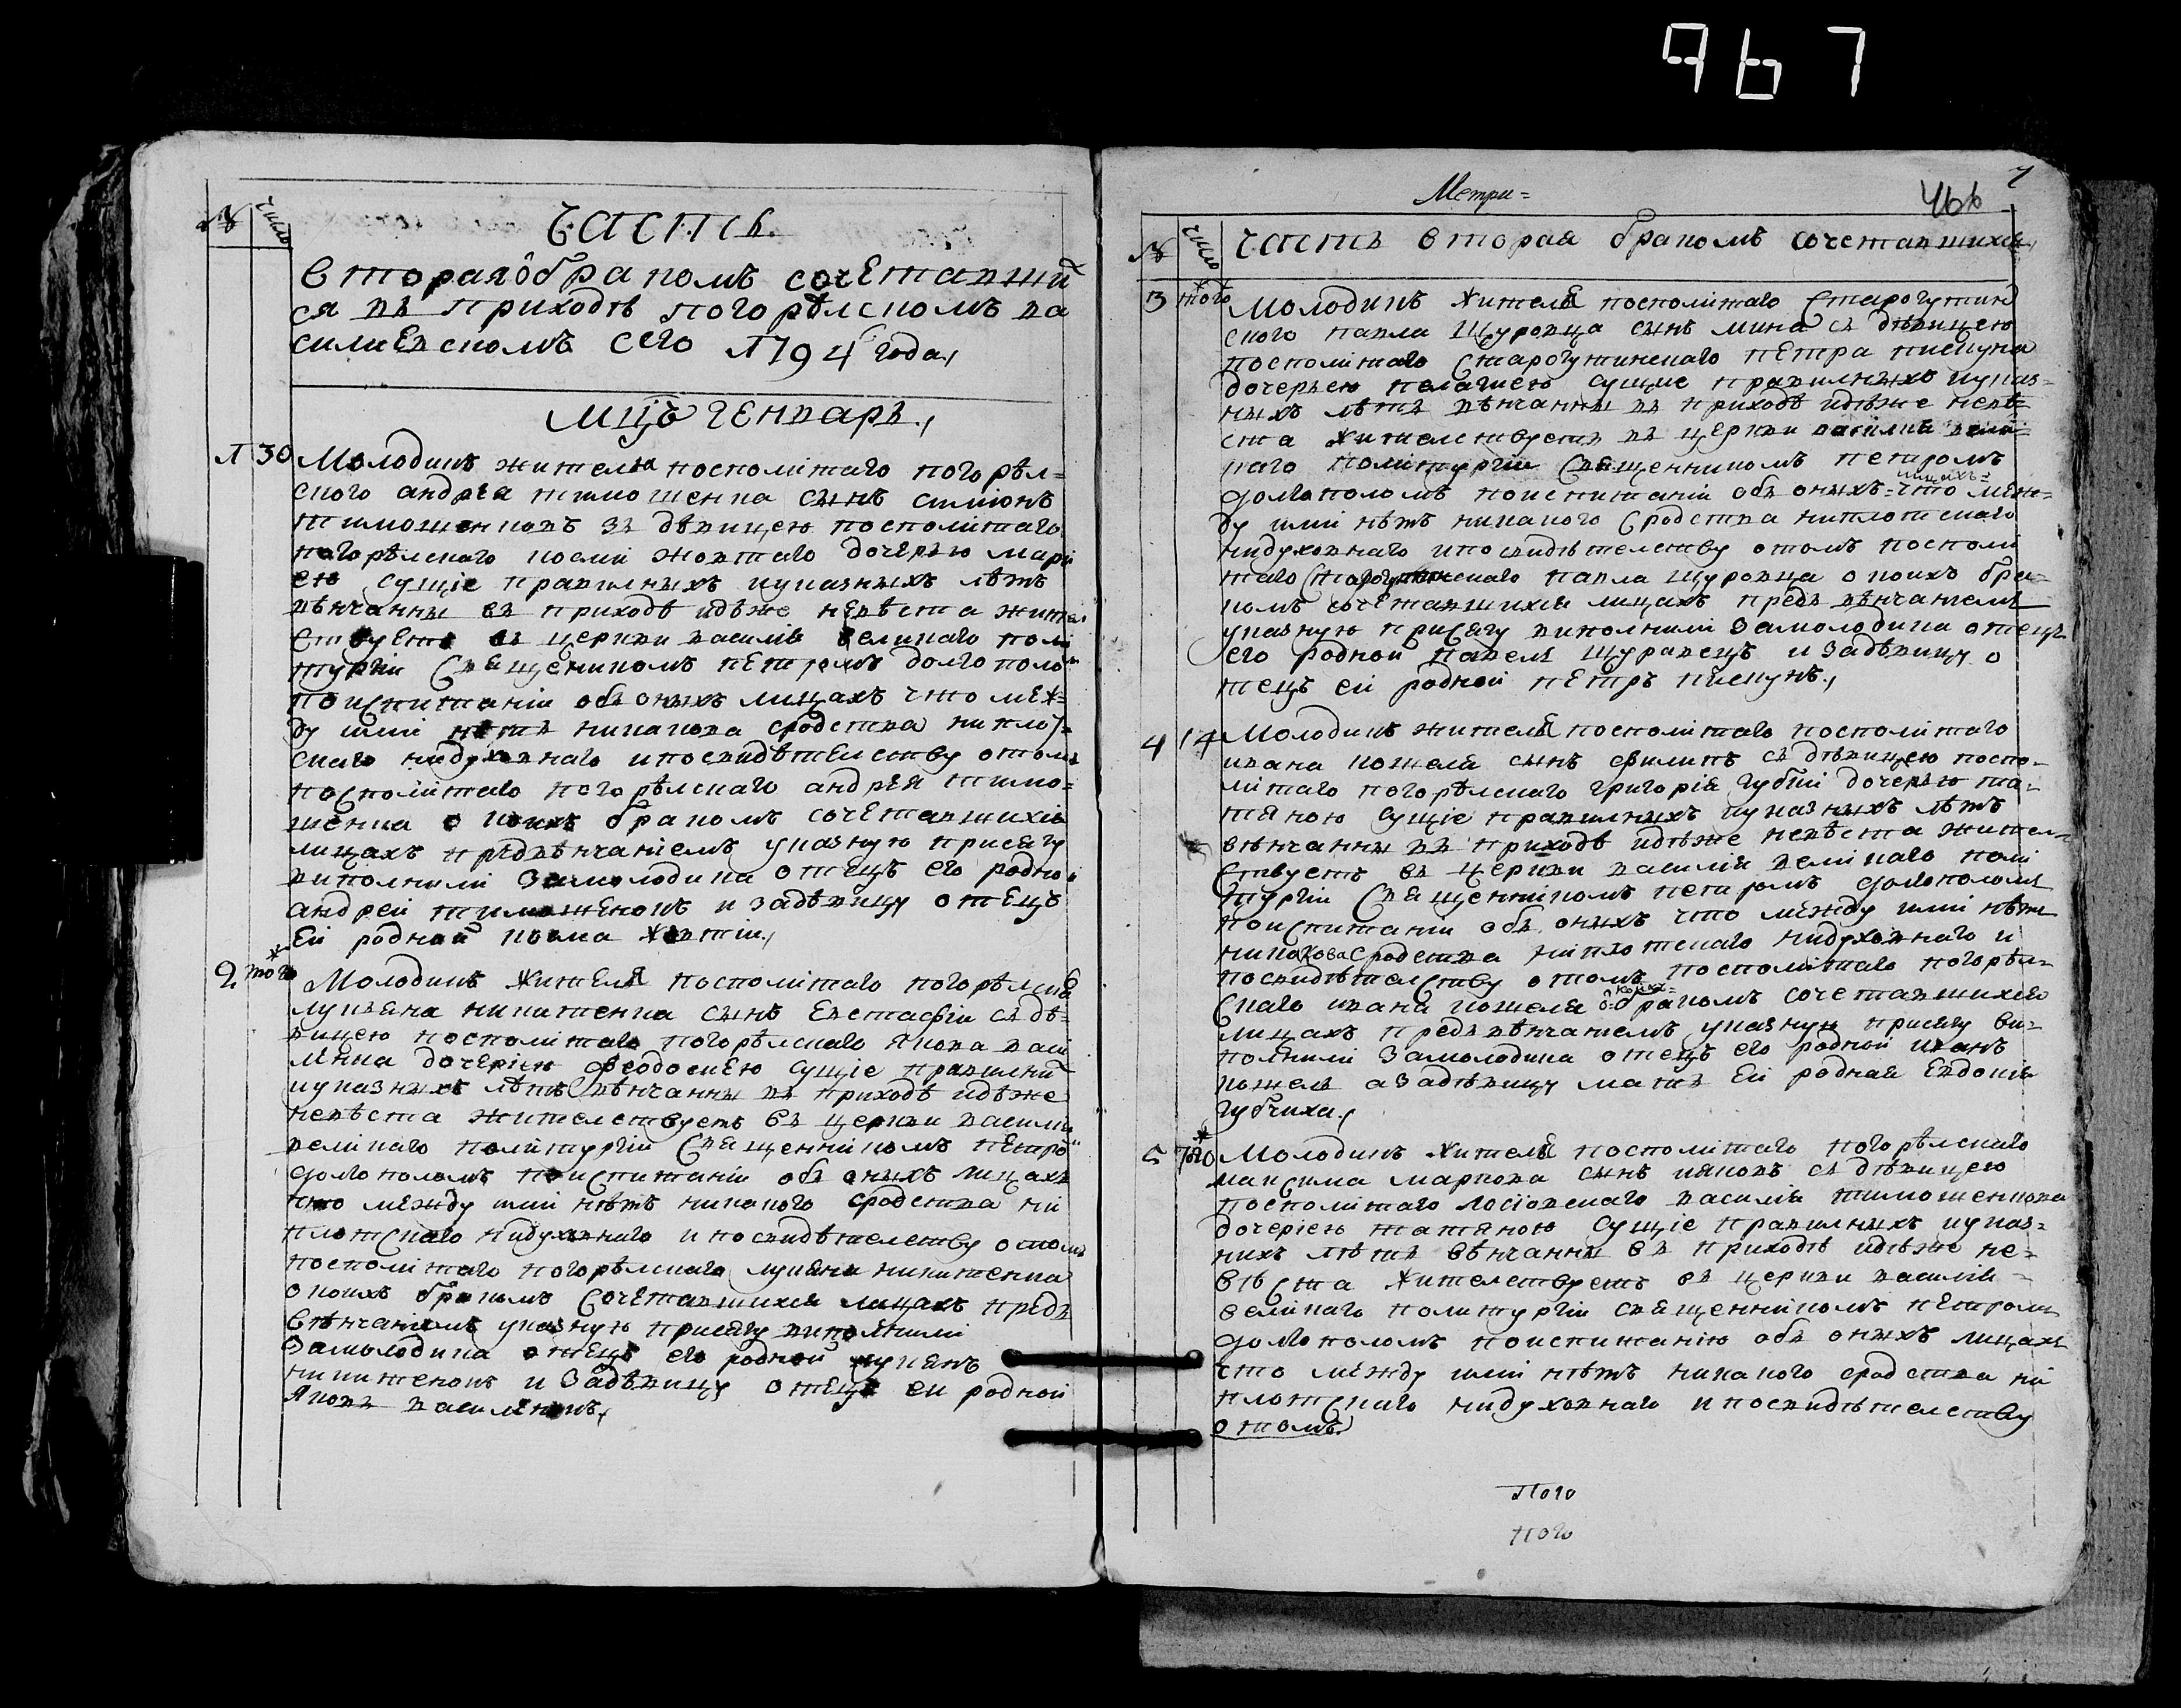 967
№ число
часть
вторая ѡ бракомъ сочетавши
ся въ приходѣ погорѣлскомъ ва
силиевскомъ сего 1794 года,
мцъ генварь,
1 30 Молодикъ жителя посполитаго погорѣл-
ского андрея тимошенка сынъ симионъ
тимошенковъ зъ дѣвицею посполитаго
погорѣлскаго козми жовтаго дочерью марі
ею сущіе правилныхъ иуказныхъ лѣтъ
вѣнчанны въ приходѣ идѣже невѣста жител
ствуетъ въ церкви василія великаго поли
тургіи священикомъ петромъ долгополом
поиспитаніи объ оныхъ лицахъ что меж-
ду ими нѣтъ никакова сродства ниплот-
скаго нидуховнаго ипосвидѣтелству отомъ
посполитаго погорѣлскаго андрея тимо-
шенка о коихъ бракомъ сочетавшихся
лицахъ предвѣнчаніемъ указную присягу
виполнили замолодика отецъ его родной
андрей тимошенокъ и задѣвицу отецъ
ей родной козма жовтій,
2 того Молодикъ жителя посполитаго погорѣлска
лукяна никитенка сынъ евстафій съ дѣ-
вицею посполитаго погорѣлскаго якова васи
ленка дочеріею феодосиею сущіе правилни
иуказныхъ лѣтъ вѣнчанны въ приходѣ идѣже
невѣста жителствуетъ въ церкви василія
великаго политургіи священникомъ петро
долгополомъ поиспитаніи объ оныхъ лицахъ
что между ими нѣтъ никакого сродства ни
плотскаго нидуховнаго ипосвидѣтелству отомъ
посполитаго погорѣлскаго лукяна никитенка
окоихъ бракомъ сочетавшихся лицахъ предъ
вѣнчаніемъ указную присягу виполнили
замолодика отецъ его родной лукянъ
никитенокъ и задѣвицу отецъ ей родной
яковъ василенокъ,
Метри=
7
466
№ число часть вторая бракомъ сочетавшихся,
3 того Молодикъ жителя посполитаго старогутин
ского павла щуровца сынъ мина съ дѣвицею
посполитаго старогутинскаго петра пискуна
дочерьею пелагиею сущие правилныхъ иуказ-
ныхъ лѣтъ вѣнчанны въ приходѣ идѣже невѣ-
ста жителствуетъ въ церкви василия вели-
каго политургіи священникомъ петромъ
долгополомъ поиспитаніи объ оныхъ= лицахъ= что меж-
ду ими нѣтъ никакого сродства ниплотскаго
нидуховнаго ипосвидѣтелству отомъ посполи
таго старогутинскаго павла щуровца о коихъ бра-
комъ сочетавшихся лицахъ предъ вѣнчаніемъ
указную присягу виполнили замолодика отецъ
его родной павелъ щуравецъ и задѣвицу о
тецъ ей родной петръ пискунъ,
4 14 Молодикъ жителя посполитаго посполитаго
ивана кошеля сынъ филипъ съ дѣвицею поспо-
литаго погорѣлскаго григорія губы дочерью та-
тяною сущіе правилныхъ иуказныхъ лѣтъ
вѣнчанны въ приходѣ идѣже невѣста жител-
ствуетъ въ церкви василія великаго поли
тургіи священникомъ петромъ долгополом
поиспитаніи объ оныхъ что между ими нѣтъ
никакова сродства ниплотскаго нидуховнаго и
посвидѣтелству отомъ посполитаго погорѣл-
скаго ивана кошеля о= коихъ= бракомъ сочетавшихся
лицахъ предъ вѣнчаніемъ указную присягу ви-
полнили замолодика отецъ его родной иванъ
кошель азадѣвицу мать ей родная евдокія
губчиха,
5 того Молодикъ жителя посполитаго погорѣлскаго
максима маркова сынъ іяковъ съ дѣвицею
посполитаго лосіовскаго василія тимошенкова
дочеріею татяною сущіе правилныхъ иуказ-
нихъ лѣтъ вѣнчанны въ приходѣ идѣже не-
вѣста жителствуетъ въ церкви василія-
великаго политургіи священникомъ петром
долгополомъ поиспитанію объ оныхъ лицахъ
что между ими нѣтъ никакого сродства ни
плотскаго нидуховнаго ипосвидѣтелству
отомъ
того
того